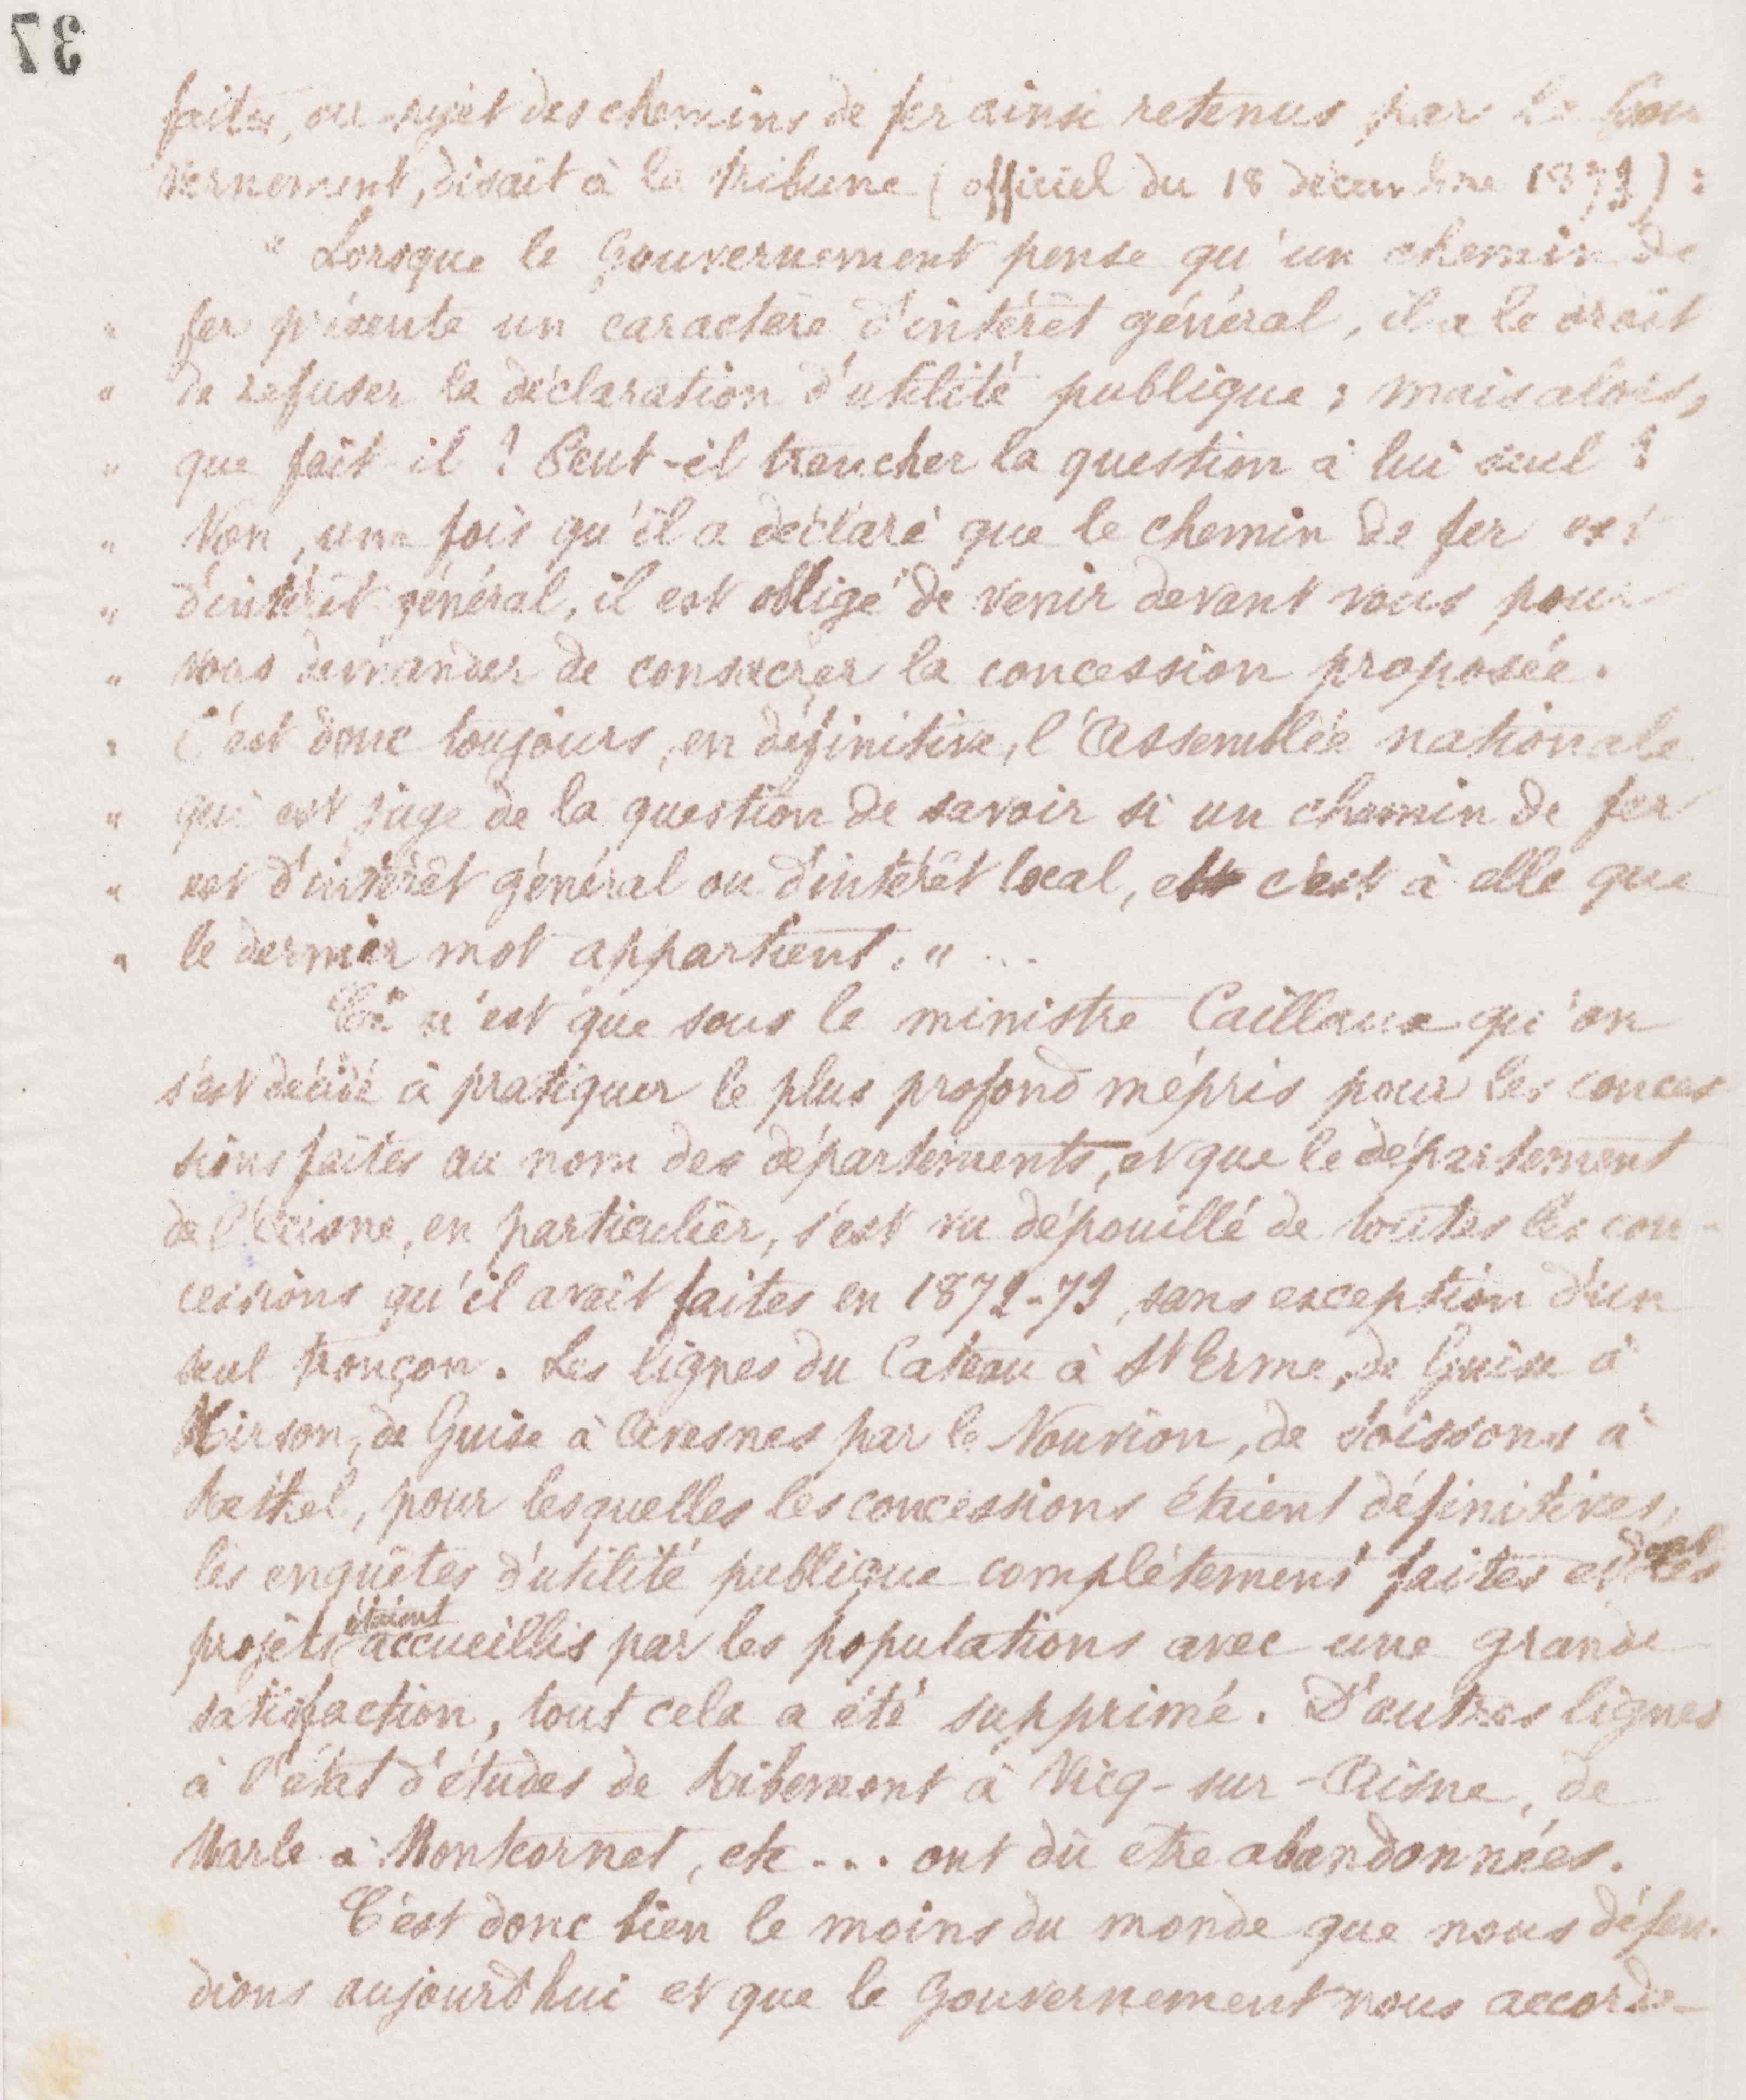 37
faites, au sujet des chemins de fer ainsi retenus par le Gou
vernement, disait à la tribune (officiel du 18 décembre 1873) :
" Lorsque le Gouvernement pense qu'un chemin de
" fer présente un caractère d'intérêt général, il a le droit
" de refuser la déclaration d'utilité publique ; mais alors,
" que fait-il ? Peut-il trancher la question à lui seul ?
" Non, une fois qu'il a déclaré que le chemin de fer est
" d'intérêt général, il est obligé de venir devant vous pour
" vous demander de consacrer la concession proposée.
" C'est donc toujours, en définitive, l'Assemblée nationale
" qui est juge de la question de savoir si un chemin de fer
" est d'intérêt général ou d'intérêt local, et c'est à elle que
" le dernier mot appartient. " ...
Ce n'est que sous le ministre Caillaux qu'on
s'est décidé à pratiquer le plus profond mépris pour les conces
sions faites au nom des départements, et que le département
de l'Aisne, en particulier, s'est vu dépouillé de toutes les con-
cessions qu'il avait faites en 1872-73, sans exception d'un
seul tronçon. Les lignes du Cateau à St Erme, de Guise à
Hirson, de Guise à Avesnes par le Nouvion, de Soissons à
Rethel, pour lesquelles les concessions étaient définitives,
les enquêtes d'utilité publique complétement faites et dont les
projets étaient accueillis par les populations avec une grande
satisfaction, tout cela a été supprimé. D'autres lignes
à l'état d'études de Ribemont à Vicq-sur-Aisne, de
Marle à Montcornet, etc... ont dû etre abandonnées.
C'est donc bien le moins du monde que nous défen-
dions aujourd'hui et que le Gouvernement nous accorde